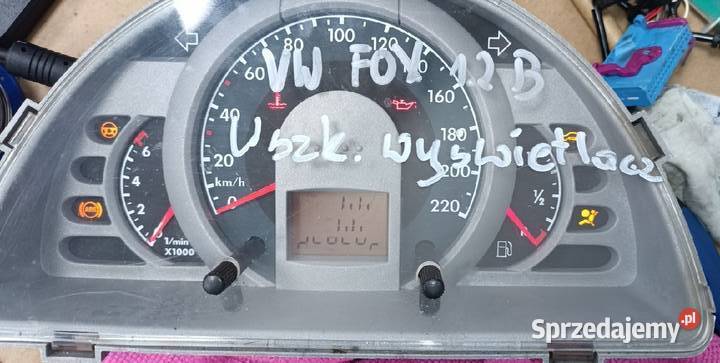 VW FOX 1.2 B
Uszk. wyświetlacz
0 20 40 60 80 100 120 160 180 200 220
km/h
2 4 6
1/min
X1000
1/2
ABS
Sprzedajemy.pl